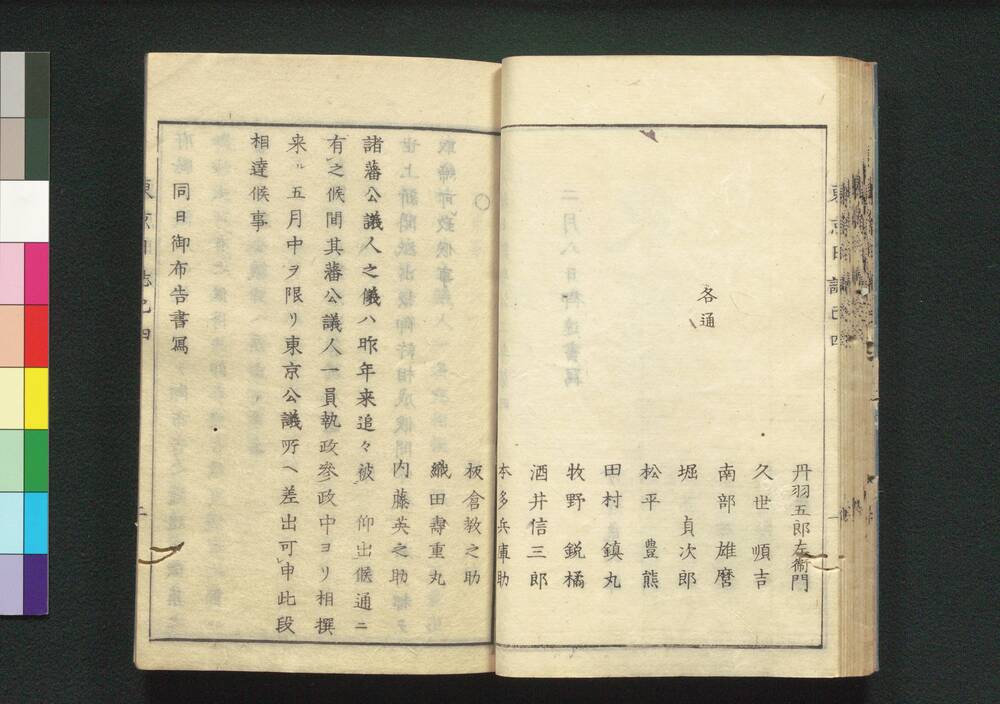 丹羽五郎左衞門
久世順吉
南部雄麿
各通
堀貞次郎
松平豊熊
田村鎮丸
牧野鋭橘
酒井信三郎
本多兵庫助
板倉教之助
織田壽重丸
内藤英之助
諸藩公議人之儀ハ昨年来追々被 仰出候通ニ
有之候間其藩公議人一員執政参政中ヨリ相撰
来ル五月中ヲ限リ東京公議所ヘ差出可申此段
相達候事
同日御布告書寫
東京日誌 四